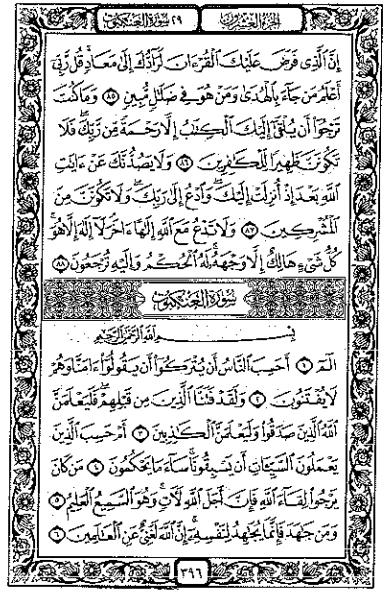 الجزء العشرون ٢٩ سورة العنكبوت
إِنَّ الَّذِي فَرَضَ عَلَيْكَ الْقُرْءَانَ لَرَادُّكَ إِلَىٰ مَعَادٍ قُل رَّبِّي
أَعْلَمُ مَن جَاءَ بِالْهُدَىٰ وَمَنْ هُوَ فِي ضَلَالٍ مُّبِينٍ ٨٥ وَمَا كُنتَ
تَرْجُوا أَن يُلْقَىٰ إِلَيْكَ الْكِتَابُ إِلَّا رَحْمَةً مِّن رَّبِّكَ فَلَا
تَكُونَنَّ ظَهِيرًا لِّلْكَافِرِينَ ٨٦ وَلَا يَصُدُّنَّكَ عَنْ ءَايَاتِ
اللَّهِ بَعْدَ إِذْ أُنزِلَتْ إِلَيْكَ وَادْعُ إِلَىٰ رَبِّكَ وَلَا تَكُونَنَّ مِنَ
الْمُشْرِكِينَ ٨٧ وَلَا تَدْعُ مَعَ اللَّهِ إِلَٰهًا ءَاخَرَ لَا إِلَٰهَ إِلَّا هُوَ
كُلُّ شَيْءٍ هَالِكٌ إِلَّا وَجْهَهُ لَهُ الْحُكْمُ وَإِلَيْهِ تُرْجَعُونَ ٨٨
سورة العنكبوت
بِسْمِ اللَّهِ الرَّحْمَٰنِ الرَّحِيمِ
الٓمٓ ١ أَحَسِبَ النَّاسُ أَن يُتْرَكُوا أَن يَقُولُوا ءَامَنَّا وَهُمْ
لَا يُفْتَنُونَ ٢ وَلَقَدْ فَتَنَّا الَّذِينَ مِن قَبْلِهِمْ فَلَيَعْلَمَنَّ
اللَّهُ الَّذِينَ صَدَقُوا وَلَيَعْلَمَنَّ الْكَاذِبِينَ ٣ أَمْ حَسِبَ الَّذِينَ
يَعْمَلُونَ السَّيِّئَاتِ أَن يَسْبِقُونَا سَاءَ مَا يَحْكُمُونَ ٤ مَن كَانَ
يَرْجُوا لِقَاءَ اللَّهِ فَإِنَّ أَجَلَ اللَّهِ لَآتٍ وَهُوَ السَّمِيعُ الْعَلِيمُ ٥
وَمَن جَاهَدَ فَإِنَّمَا يُجَاهِدُ لِنَفْسِهِ إِنَّ اللَّهَ لَغَنِيٌّ عَنِ الْعَالَمِينَ ٦
٣٩٦